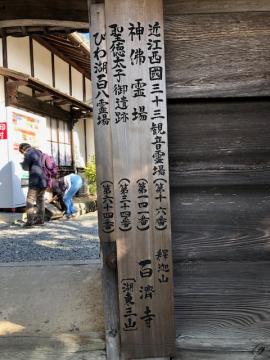 近江西國三十三観音霊場(第十六番)
神佛霊場(第一四二番)
聖徳太子御遺跡(第三十四番)
びわ湖百八霊場(第六十四番)
釈迦山
百濟寺
[湖東三山]